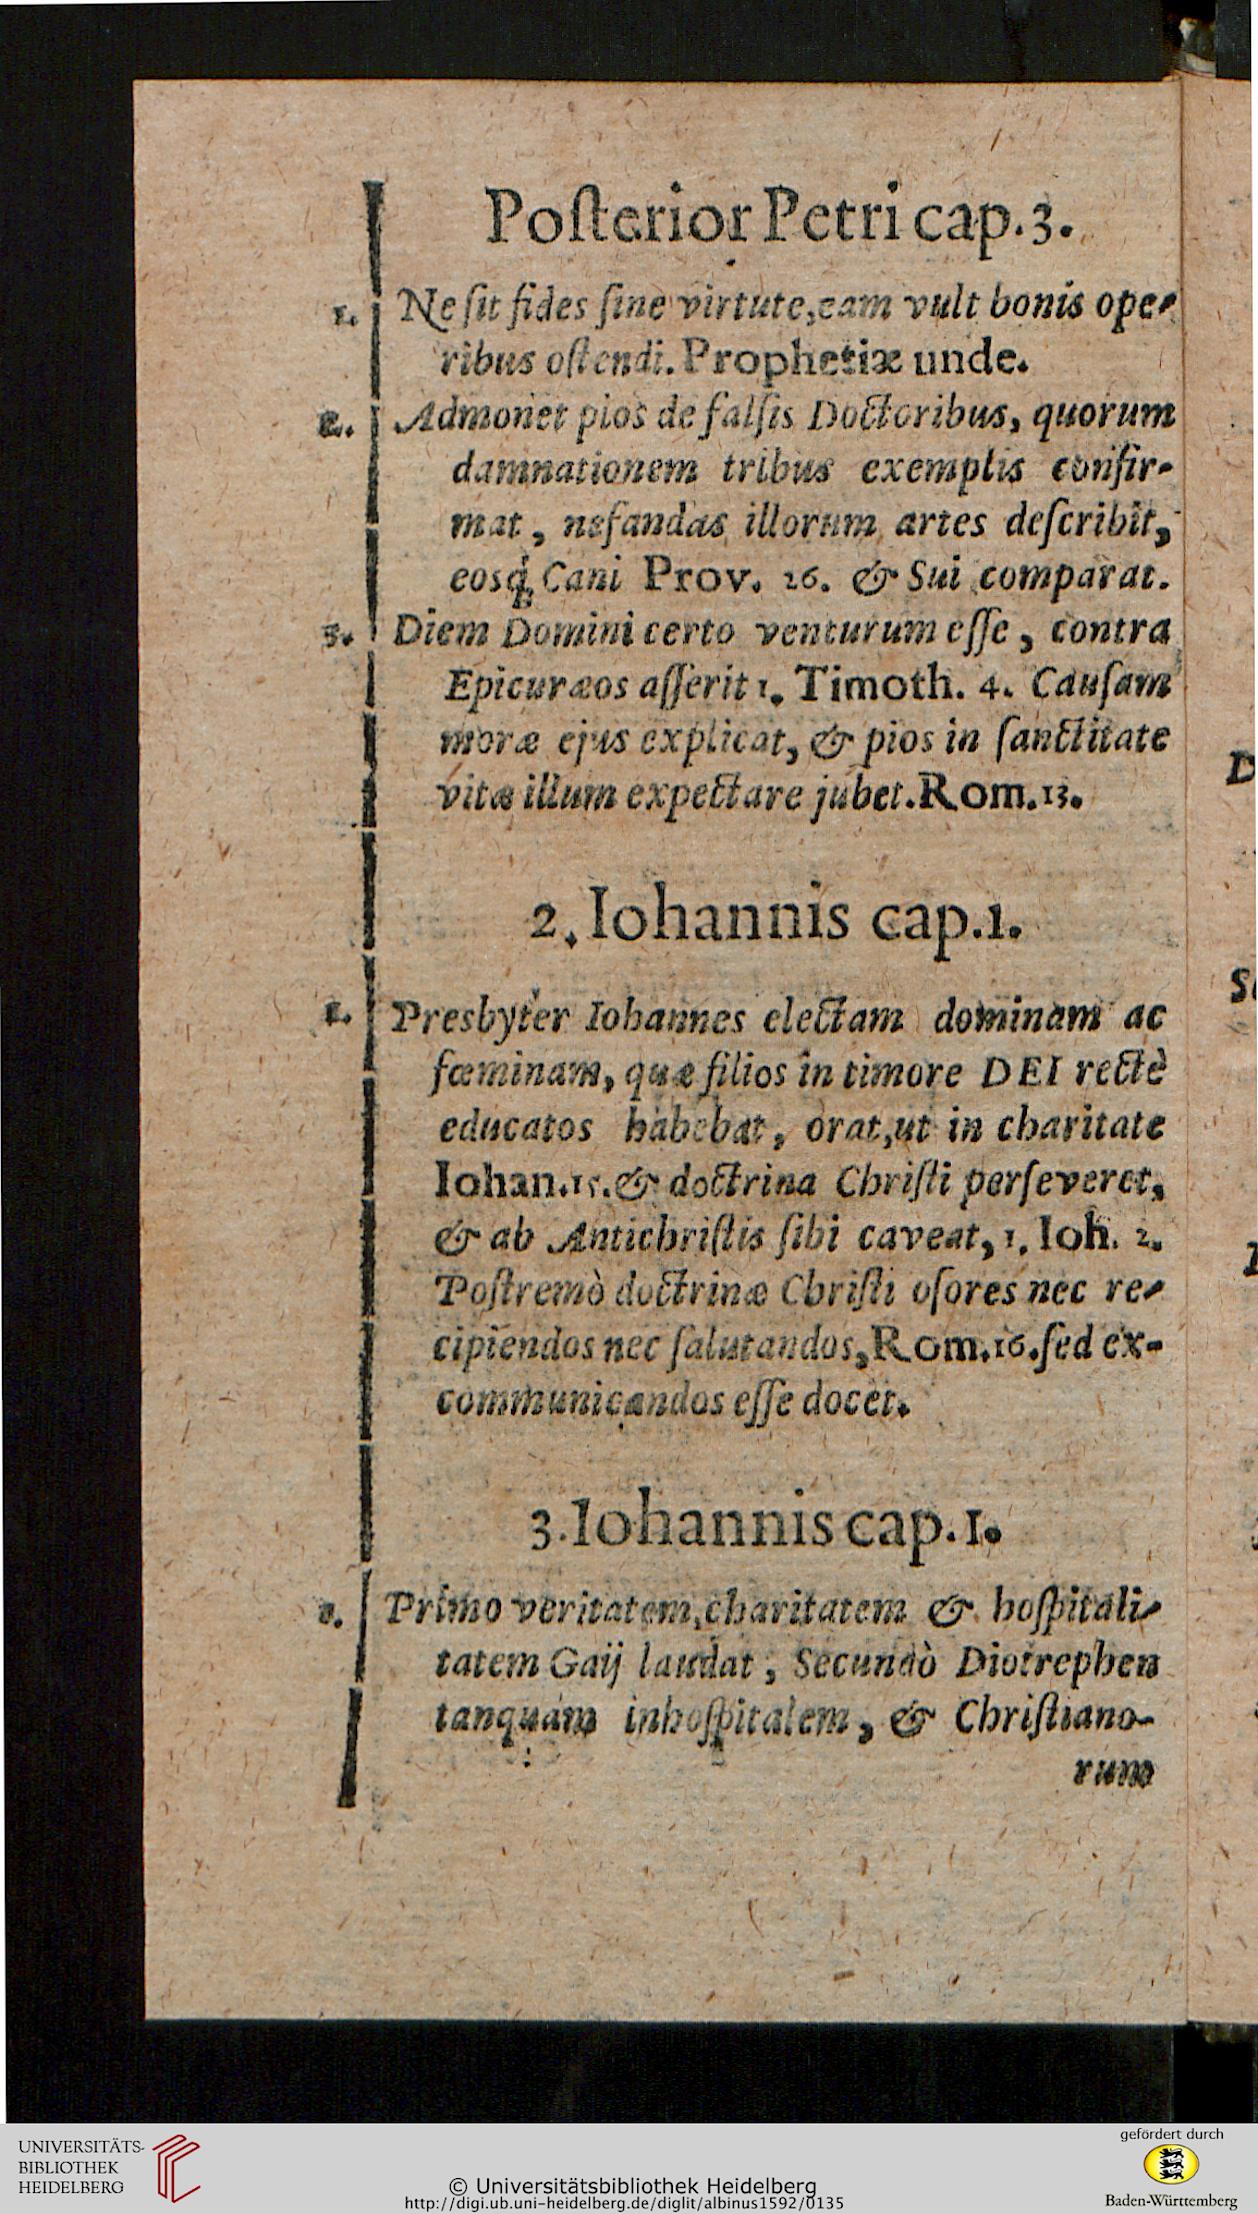 Poſterior Petri cap. 3.
1. Ne ſit fides ſine virtute, eam vult bonis ope-
ribus oſtendi. Prophetiæ unde.
2. Admonet pios de falſis Doctoribus, quorum
damnationem tribus exemplis confir-
mat, nefandas illorum artes deſcribit,
eosq; Cani Prov. 26. & Sui comparat.
3. Diem Domini certo venturum eſſe, contra
Epicuræos aſſerit 1. Timoth. 4. Cauſam
moræ ejus explicat, & pios in ſanctitate
vitæ illum expectare jubet. Rom. 13.
2. Iohannis cap. 1.
1. Presbyter Iohannes electam dominam ac
fœminam, quæ filios in timore DEI rectè
educatos habebat, orat, ut in charitate
Iohan. 15. & doctrina Chriſti perſeveret,
& ab Antichriſtis ſibi caveat, 1. Ioh. 2.
Poſtremò doctrinæ Chriſti oſores nec re-
cipiendos nec ſalutandos, Rom. 16. ſed ex-
communicandos eſſe docet.
3. Iohannis cap. 1.
Primo veritatem, charitatem & hoſpitali-
tatem Gaij laudat, Secundò Diotrephen
tanquam inhoſpitalem, & Chriſtiano-
rum
UNIVERSITÄTS-
BIBLIOTHEK
HEIDELBERG
© Universitätsbibliothek Heidelberg
http://digi.ub.uni-heidelberg.de/diglit/albinus1592/0135
gefördert durch
Baden-Württemberg